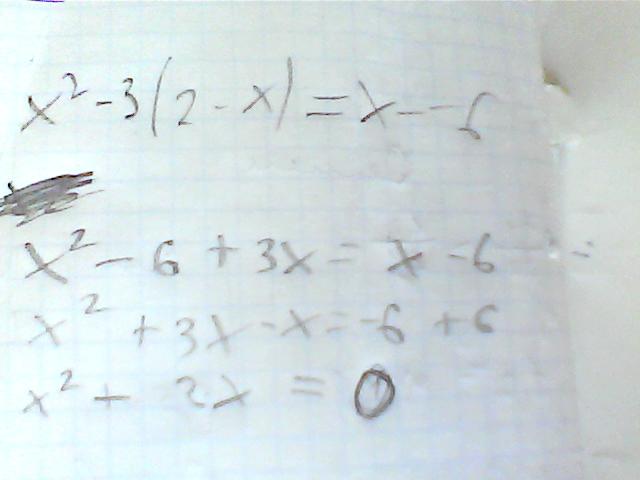 x² - 3(2 - x) = x - - 6
x² - 6 + 3x = x - 6
x² + 3x - x = -6 + 6
x² + 2x = 0